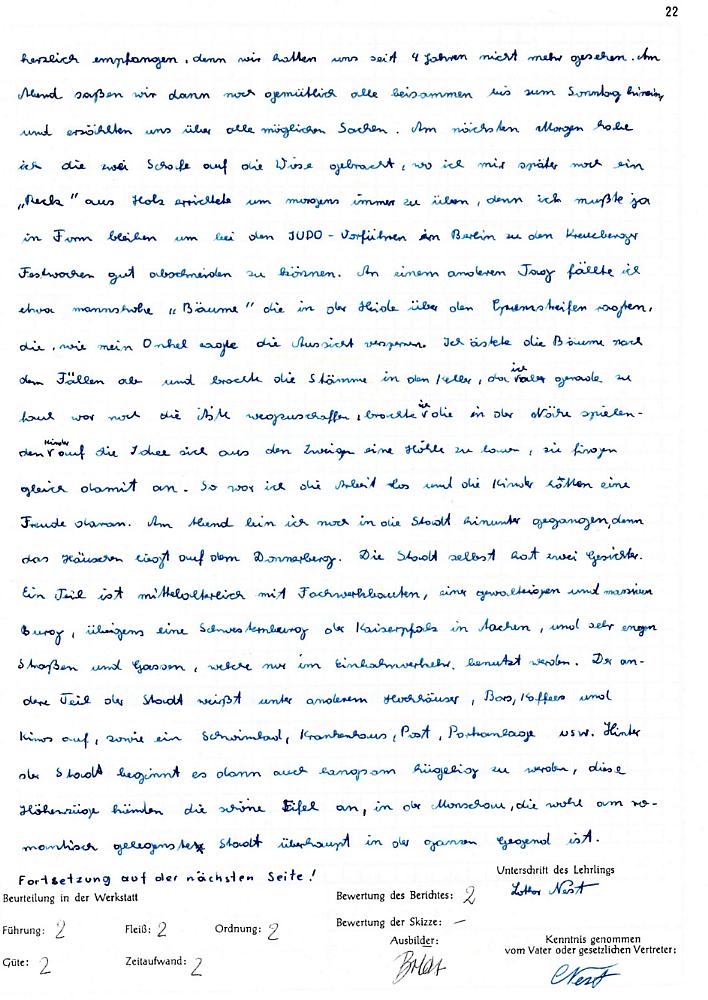 22
herzlich empfangen, denn wir hatten uns seit 4 Jahren nicht mehr gesehen. Am
Abend saßen wir dann noch gemütlich alle beisammen bis zum Sonntag hinein,
und erzählten uns über alle möglichen Sachen. Am nächsten Morgen habe
ich die zwei Schafe auf die Wiese gebracht, wo ich mir später noch ein
„Reck" aus Holz errichtete um morgens immer zu üben, denn ich mußte ja
in Form bleiben um bei den JUDO-Vorführen in Berlin zu den Kreuzberger
Festwochen gut abschneiden zu können. An einem anderen Tag fällte ich
etwa mannshohe „Bäume" die in der Heide über den Grenzstreifen ragten,
die, wie mein Onkel sagte die Aussicht versperren. Ich ästete die Bäume nach
dem Fällen ab und brachte die Stämme in den Keller, da ich gerade zu
faul war noch die Äste wegzuschaffen, brachte ich die in der Nähe spielen-
den Kinder auf die Idee sich aus den Zweigen eine Höhle zu bauen, sie fingen
gleich damit an. So war ich die Arbeit los und die Kinder hatten eine
Freude daran. Am Abend bin ich noch in die Stadt hinunter gegangen, denn
das Häuschen liegt auf dem Donnerberg. Die Stadt selbst hat zwei Gesichter.
Ein Teil ist mittelalterlich mit Fachwerkbauten, einer gewaltigen und massiven
Burg, übrigens eine Schwesternburg der Kaiserpfalz in Aachen, und sehr engen
Straßen und Gassen, welche nur im Einbahnverkehr benutzt werden. Der an-
dere Teil der Stadt weißt unter anderem Hochhäuser, Bars, Kaffees und
Kinos auf, sowie ein Schwimbad, Krankenhaus, Post, Parkanlage usw. Hinter
der Stadt beginnt es dann auch langsam hügelig zu werden, diese
Höhenzüge künden die schöne Eifel an, in der Monschau, die wohl am ro-
mantisch gelegenste Stadt überhaupt in der ganzen Gegend ist.
Fortsetzung auf der nächsten Seite!
Unterschrift des Lehrlings
Lothar Nest
Beurteilung in der Werkstatt
Bewertung des Berichtes: 2
Führung: 2 Fleiß: 2 Ordnung: 2
Bewertung der Skizze: –
Ausbilder:
Kenntnis genommen
vom Vater oder gesetzlichen Vertreter:
Güte: 2 Zeitaufwand: 2
Nest